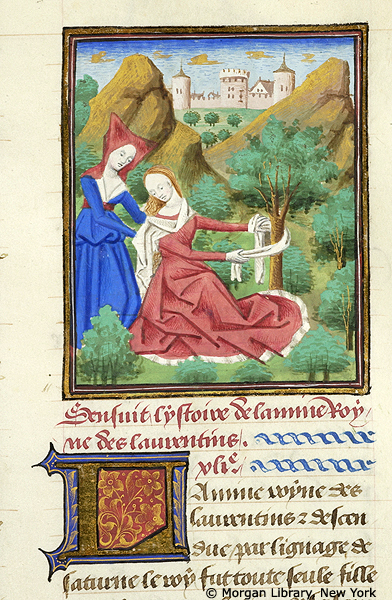 Sensuit lystoire de lauine Roy
ne des laurentins.
xlie
LAuine royne des
laurentins & descen
due par lignage de
saturne le roy fut toute seule fille
© Morgan Library, New York